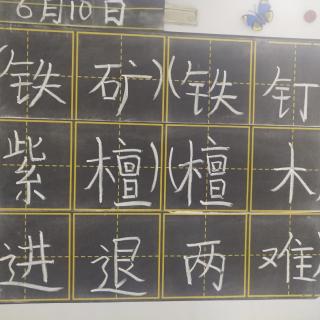 6月10日
(铁矿)(铁钉
紫檀)(檀木
进退两难)